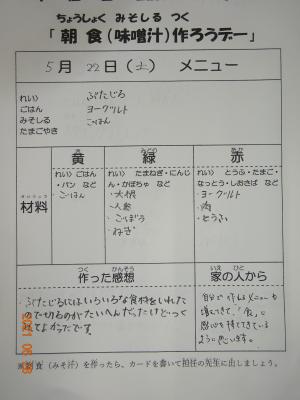 ちょうしょく みそしる つく
「 朝 食 (味噌汁) 作ろうデー」
5月 22日 (土) メニュー
れい) ぶたじる
ごはん ヨーグルト
みそしる ごはん
たまごやき
ざいりょう
材料
き
黄
れい) ごはん
・パン など
・ごはん
みどり
緑
れい) たまねぎ・にんじ
ん・かぼちゃ など
・大根
・人参
・ごぼう
・ねぎ
あか
赤
れい) とうふ・たまご・
なっとう・しおさば など
・ヨーグルト
・肉
・とうふ
つく かんそう
作った感想
ぶたじるにはいろいろな食材をいれた
ので切るのがたいへんだったけどつく
れてよかったです。
いえ ひと
家の人から
自分で作れるメニューが
増えてきて、「食」に
関心を持ててきている
ように思います。
※朝食(みそ汁)を作ったら、カードを書いて担任の先生に出しましょう。